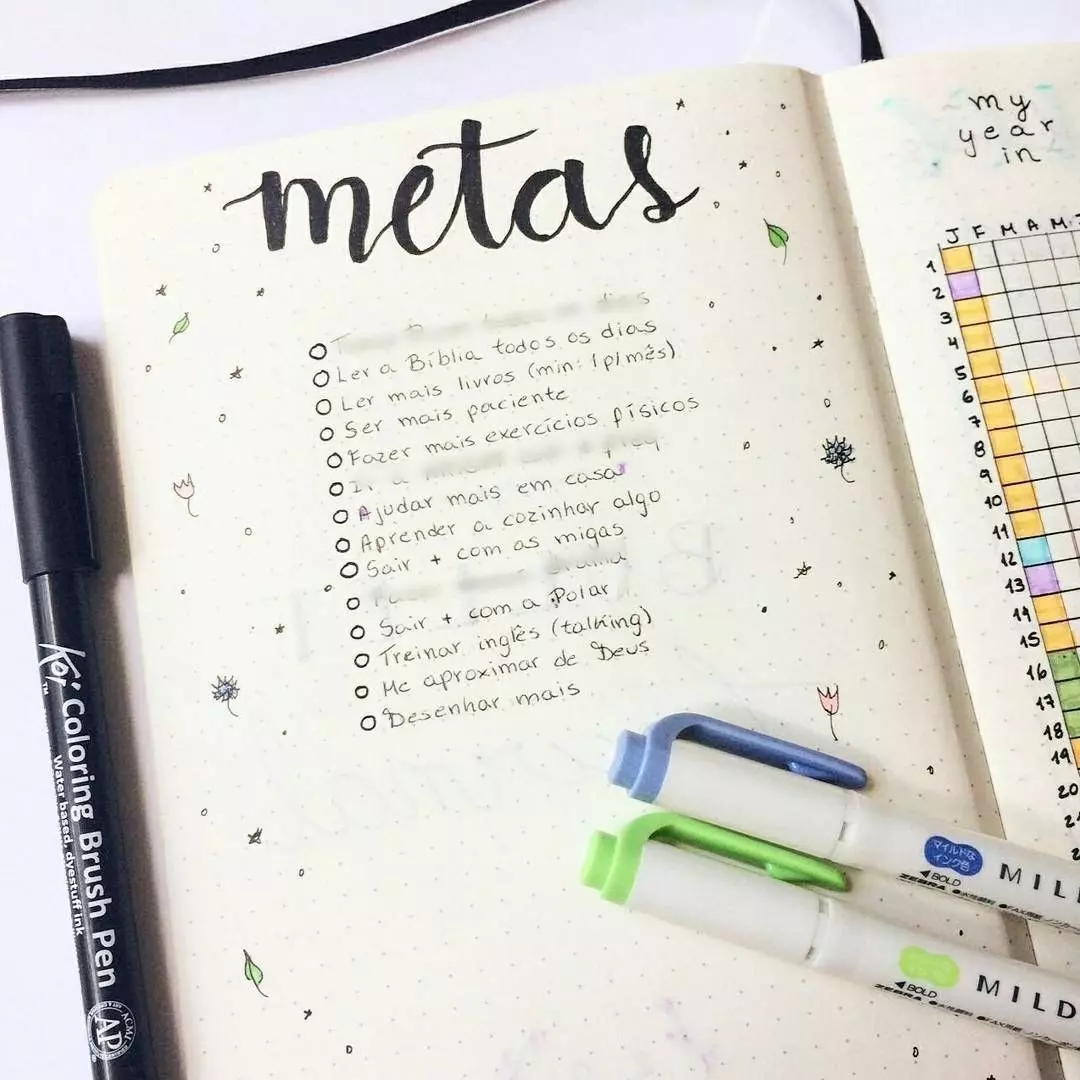 metas
Ler a Bíblia todos os dias
Ler mais livros (min: 1p/mês)
Ser mais paciente
Fazer mais exercícios físicos
Ajudar mais em casa
Aprender a cozinhar algo
Sair + com as migas
Sair + com a Polar
Treinar inglês (talking)
Me aproximar de Deus
Desenhar mais
my
year
in
J F M A M J
1
2
3
4
5
6
7
8
9
10
11
12
13
14
15
16
17
18
19
20
Koi™ Coloring Brush Pen
Water based, dyestuff ink
AP
マイルドな
インク色
BOLD
ZEBRA
MILD
BOLD
ZEBRA